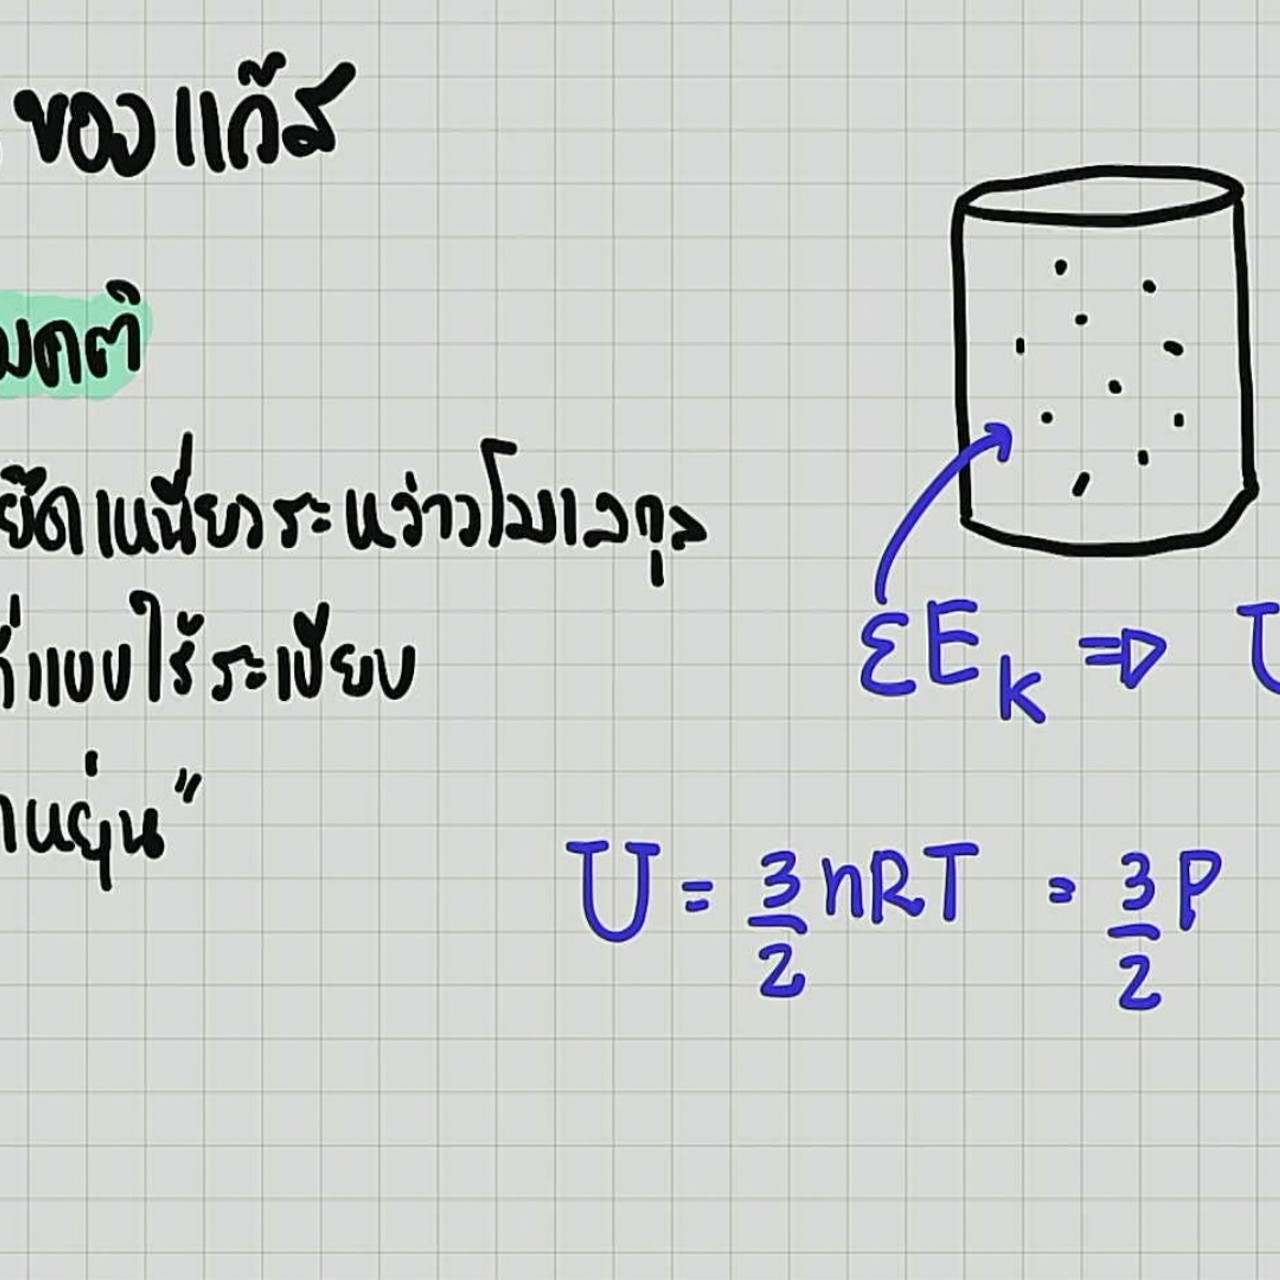 ของแก๊ส
มคติ
ยึดเหนี่ยวระหว่างโมเลกุล
ที่แบบไร้ระเบียบ
หยุ่น"
ΣE_k ⇒ U
U = 3/2 nRT = 3/2 P